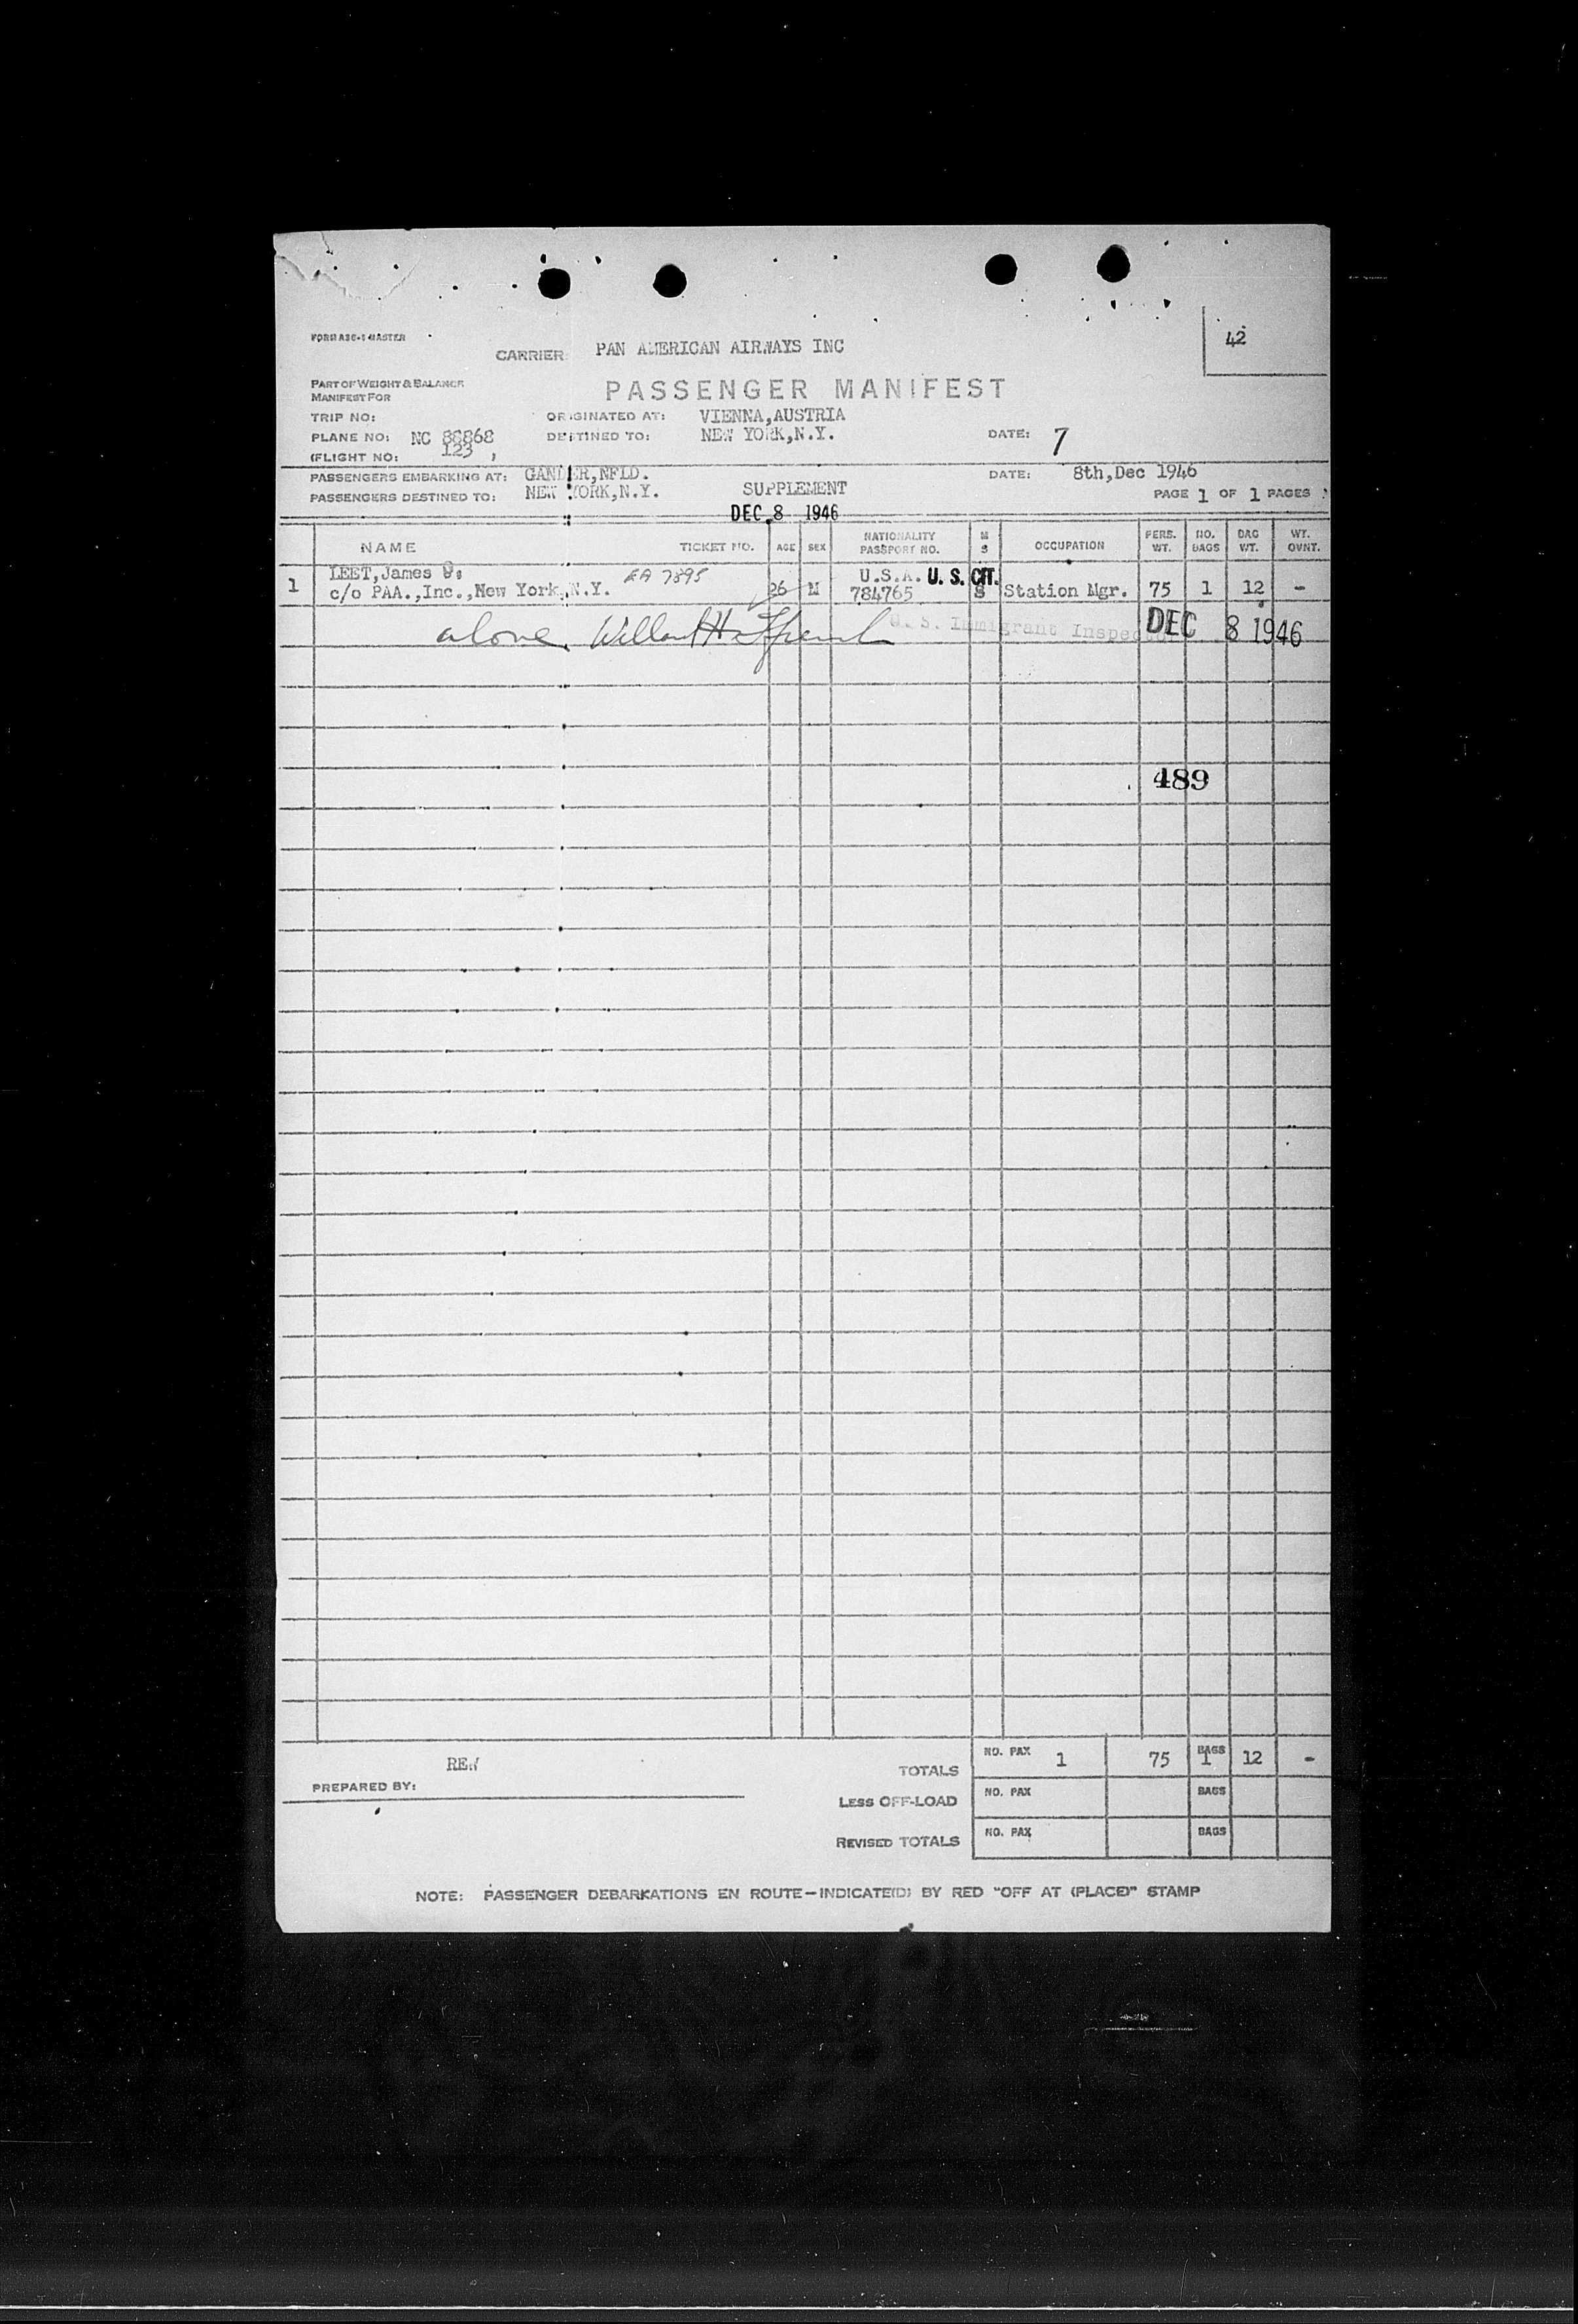 42
CARRIER: PAN AMERICAN AIRWAYS INC
PART OF WEIGHT & BALANCE
MANIFEST FOR
PASSENGER MANIFEST
TRIP NO: ORIGINATED AT: VIENNA,AUSTRIA
PLANE NO: NC 88868 DESTINED TO: NEW YORK,N.Y. DATE: 7
(FLIGHT NO: 123 )
PASSENGERS EMBARKING AT: GANDER,NFLD. DATE: 8th,Dec 1946
PASSENGERS DESTINED TO: NEW YORK,N.Y. SUPPLEMENT PAGE 1 OF 1 PAGES
DEC 8 1946
NAME TICKET NO. AGE SEX NATIONALITY PASSPORT NO. M S OCCUPATION PERS. WT. NO. BAGS BAG WT. WT. OVNT.
1 LEET,James EA 7895 26 M U.S.A. U. S. CIT. S Station Mgr. 75 1 12 -
c/o PAA.,Inc.,New York,N.Y. 784765
alone U. S. Immigrant Inspector DEC 8 1946
489
REW
PREPARED BY:
TOTALS NO. PAX 1 75 BAGS 1 12 -
LESS OFF-LOAD NO. PAX BAGS
REVISED TOTALS NO. PAX BAGS
NOTE: PASSENGER DEBARKATIONS EN ROUTE—INDICATE(D) BY RED "OFF AT (PLACE)" STAMP